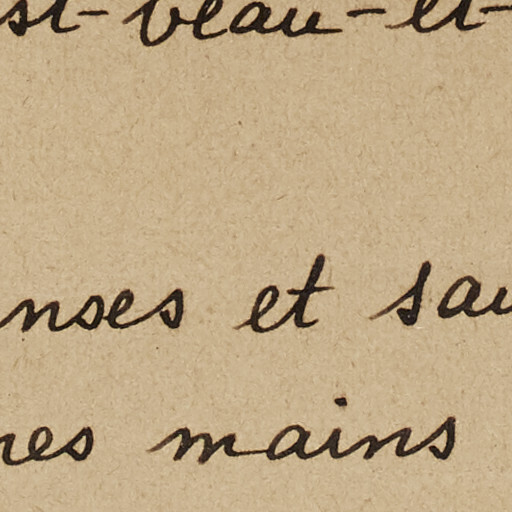 st-beau-et-
nses et sau
res mains